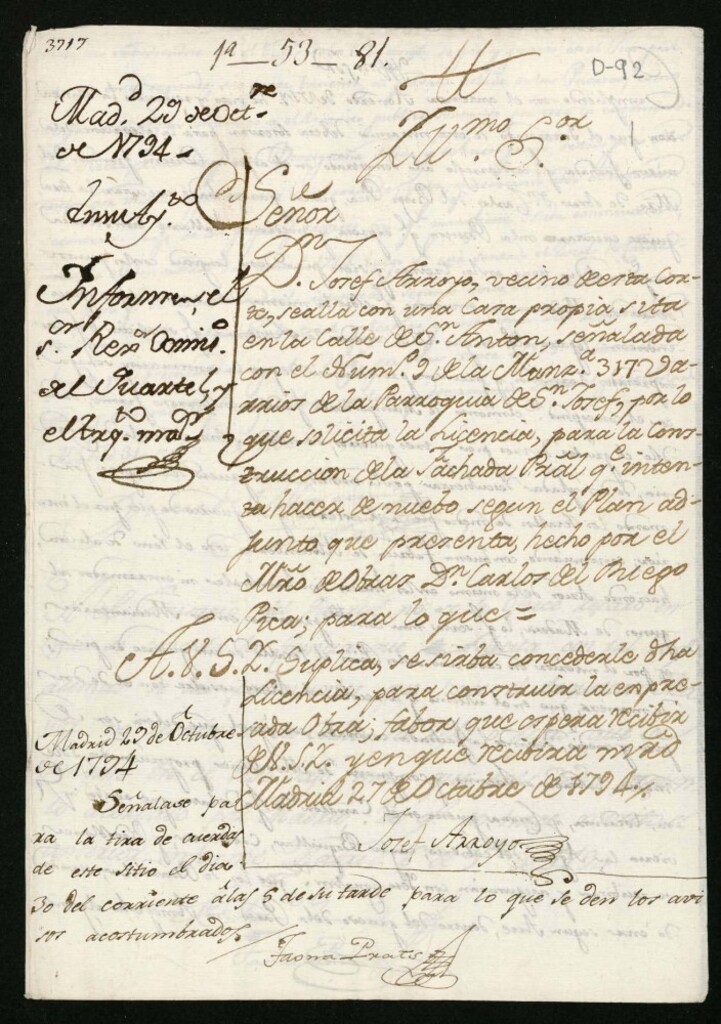 3717
1ª — 53 — 81.
D-92
Yll.mo S.or
Mad.d 29 de Oct.re
de 1794
Señor
En su Ay.to
D.n Josef Arroyo, vecino de esta Cor-
te, se alla con una Casa propia sita
en la Calle de S.n Anton, señalada
con el Num.o 9 de la Manz.a 317 Ba-
rrios de la Parroquia de S.n Josef, por lo
que solicita la Licencia, para la Cons-
truccion de la Fachada Pral q.e inten-
ta hacer de nuebo segun el Plan ad-
junto que presenta, hecho por el
Mrô de Obras D.n Carlos del Riego
Pica; para lo que =
Informen el
s.or Rex.or Comis.o
del Quartel, y
el Arq.to mor
A.V.S.Y. Suplica, se sirba concederle dha
Licencia, para construir la expre-
sada Obra; fabor que espera recibir
de V.S.Y. y en que recibira mrd
Madrid 27 de Octubre de 1794.
Josef Arroyo
Madrid 29 de Octubre
de 1794
Señalase pa
ra la tira de cuerdas
de este sitio el dia
30 del corriente â las 5 de su tarde para lo que se den los avi
sos acostumbrados
Prats